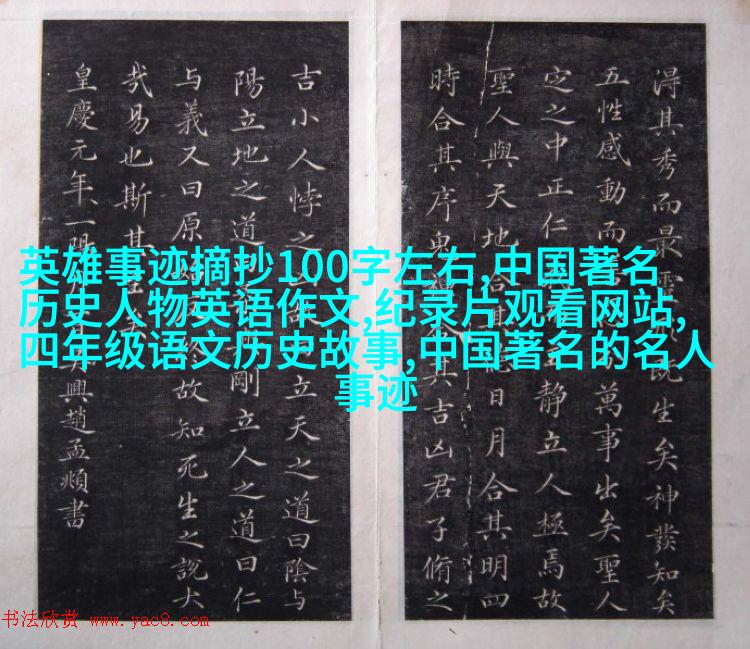 英雄事迹摘抄100字左右,中国著名
历史人物英语作文,纪录片观看网站,
四年级语文历史故事,中国著名的名人
事迹
得其秀而最靈既生矣神發知矣
五性感動而萬事出矣聖人
定之中正仁靜立人極焉故
聖人與天地合其日月合其明四
時合其序其吉凶君子脩之
吉小人悖之立天之道曰陰与
陽立地之道剛立人之道曰仁
与義又曰原故知死生之說大
哉易也斯其
皇慶元年一陽月興趙孟頫書
书法欣赏 www.yac8.com